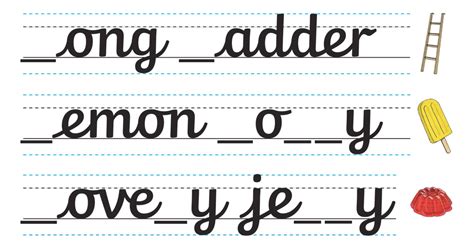 _ong _adder
_emon _o__y
_ove_y je__y